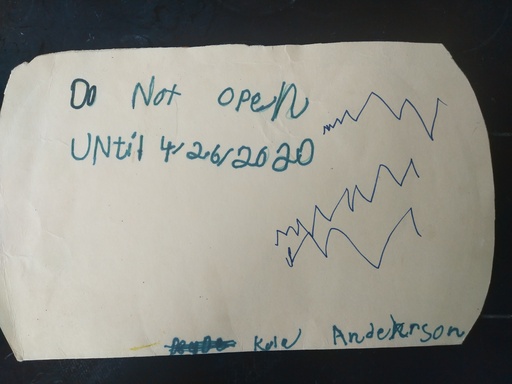 Do Not open
UNtil 4/26/2020
Kole Anderson